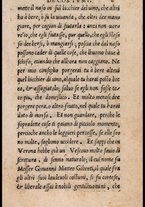 DE COSTVMI.
metter il naso in sul bicchier del vino, che altri
ha a bere, o su la viuanda, che altri dee man-
giare, per cagion di fiutarla: anzi non vorre'
io, che egli fiutasse, pur quello, che egli stesso
dee bersi, o mangiarsi; poscia che dal naso
possono cader di quelle cose, che l'huomo haue
a schifo, etiandio che allhora non caggiano. Ne
per mio consiglio porgerai tu a bere altrui
quel bicchier di vino, alquale tu harai posto
bocca, & assaggiatolo, saluo se egli non fosse
teco più che domestico. & molto meno si dee
porgere pera, o altro frutto, nelquale tu harai
dato di morso. & non guardare, perche le so-
pra dette cose ti paiano di picciolo momento;
perciò che anchora le leggieri percosse, se elle sono
molte, sogliono uccidere. Et sappi che in
Verona hebbe già un Vescouo molto sauio di
scrittura, & di senno naturale, il cui nome fu
Messer Giouanni Matteo Giberti, il quale fra
gli altri suoi laudeuoli costumi, si fu cortese,
& liberale assai a nobili gentilhuomini, che